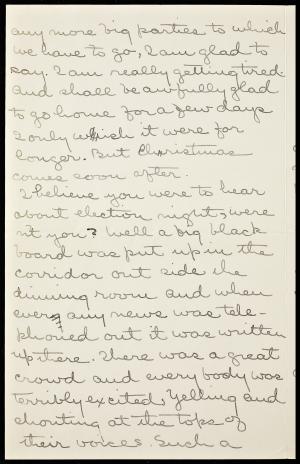 any more big parties to which
we have to go, I am glad to
say. I am really getting tired.
and shall be awfully glad
to go home for a few days
I only wish it were for
longer. But Christmas
comes soon after.
I believe you were to hear
about election night, were
n't you? Well a big black
board was put up in the
corridor out side the
dinning room and when
every any news was tele-
phoned out it was written
up there. There was a great
crowd and every body was
terribly excited, Yelling and
shouting at the tops of
their voices. Such a